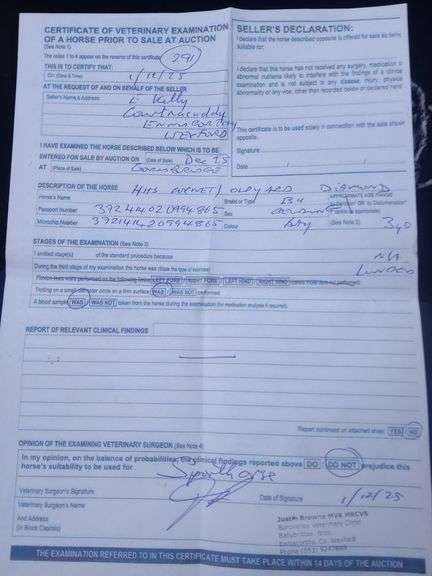 CERTIFICATE OF VETERINARY EXAMINATION
OF A HORSE PRIOR TO SALE AT AUCTION
(See Note 1)
The notes 1 to 4 appear on the reverse of this certificate
291
THIS IS TO CERTIFY THAT:
On (Date & Time) 1/12/25
AT THE REQUEST OF AND ON BEHALF OF THE SELLER
Seller's Name & Address
E Kelly
Enniscorthy
WEXFORD
I HAVE EXAMINED THE HORSE DESCRIBED BELOW WHICH IS TO BE
ENTERED FOR SALE BY AUCTION ON (Date of Sale) Dec 25
AT (Place of Sale) GORESBRIDGE
SELLER'S DECLARATION:
I declare that the horse described opposite is offered for sale as being
suitable for:
I declare that this horse has not received any surgery, medication or
abnormal nutrients likely to interfere with the findings of a clinical
examination and is not subject to any disease, injury, physical
abnormality or any vice, other than recorded below or declared
This certificate to be used solely in connection with the sale shown
opposite.
Signature
Date
DESCRIPTION OF THE HORSE
Horse's Name HHS DIAMOND
Passport Number 372414020994865
Breed or Type
Sex
Microchip Number 372414020994865
Colour Bay
STAGES OF THE EXAMINATION (See Note 3)
I omitted stage(s) of the standard procedure because N/A
During the third stage of my examination the horse was (State the type of exercise) LUNGED
Flexion tests were performed on the following limbs LEFT FORE RIGHT FORE LEFT HIND RIGHT HIND
Trotting on a small diameter circle on a firm surface WAS WAS NOT performed
A blood sample WAS WAS NOT taken from the horse during the examination (for medication analysis if required).
REPORT OF RELEVANT CLINICAL FINDINGS
Report continued on attached sheet YES NO
OPINION OF THE EXAMINING VETERINARY SURGEON (See Note 4)
In my opinion, on the balance of probabilities, the clinical findings reported above DO DO NOT prejudice this
horse's suitability to be used for Sporthorse
Veterinary Surgeon's Signature
Date of Signature 1/12/25
Veterinary Surgeon's Name
And Address
(In Block Capitals)
Justin Browne MVB MRCVS
THE EXAMINATION REFERRED TO IN THIS CERTIFICATE MUST TAKE PLACE WITHIN 14 DAYS OF THE AUCTION